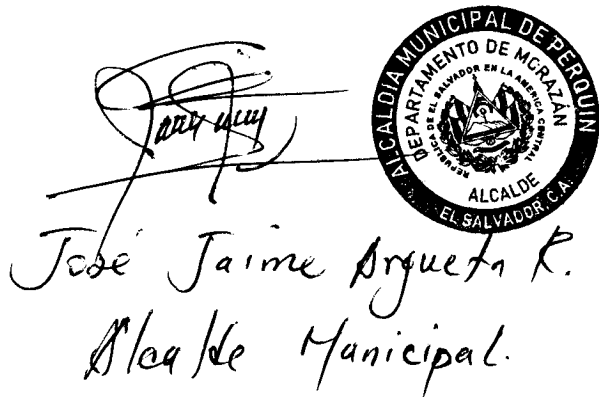 ALCALDIA MUNICIPAL DE PERQUIN
DEPARTAMENTO DE MORAZÁN
REPUBLICA DE EL SALVADOR EN LA AMERICA CENTRAL
ALCALDE
EL SALVADOR, C.A.
José Jaime Argueta R.
Alcalde Municipal.